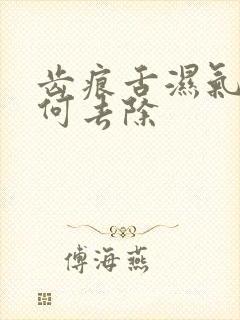 齿痕舌濕氣
何去除
傅海燕